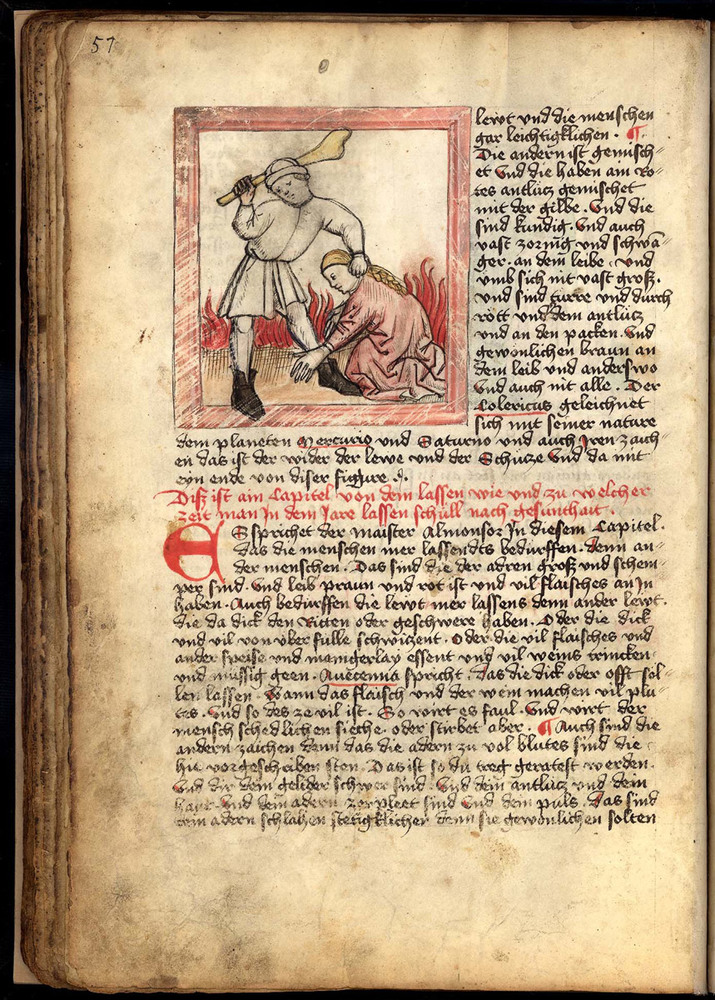 57
lewt vnd die menschen
gar leichtigklichen · ¶
Die andern ist gemisch-
et vnd die haben am Ro-
tes antlücz gemischet
mit der gilbe · vnd die
sind kundig · vnd auch
vast zornig vnd schwa-
ger · an dem leibe · vnd
vmb sich nit vast groß ·
vnd sind türre vnd durch
rott vnd dem antlücz
vnd an den packen · vnd
gewonlichen braun an
dem leib vnd anderswo
vnd auch nit alle · Der
Colericus geleichnet
sich mit seiner nature
dem planeten Mercurio vnd Saturno vnd auch Iren zaich-
en das ist der wider der lewe vnd der Schucze vnd da mit
eyn ende von diser figure ·
Diß ist ain Capitel von dem lassen wie vnd zu welcher
zeit man In dem Jare lassen schüll nach gesunthait ·
ES sprichet der maister Almonsor In diesem Capitel ·
das die menschen mer lassendts bedürffen · denn an-
der menschen · Das sind die der adren groß vnd schein-
per sind · vnd leib praun vnd rot ist vnd vil flaisches an In
haben · Auch bedürffen die lewt mer lassens denn ander lewt ·
die da dick den Ritten oder geschwere haben · Oder die dick
vnd vil von vber fulle schwiczent · Oder die vil flaisches vnd
ander speise vnd maingerlay essent vnd vil weins trincken ·
vnd müssig geen · Auecenna spricht · das die dick oder offt sol-
len lassen · Wann das flaisch vnd der wein machen vil plu-
tes · vnd so des ze vil ist · So wirt es faul · vnd wirt der
mensch schedlichen sieche · oder stirbet aber · ¶ Auch sind die
andern zaichen denn das die adern zu vol blutes sind die
hie vorgeschriben sten · Das ist so du treg geratest werden ·
vnd dir dein gelider schwer sind · vnd dein antlücz vnd dein
haut vnd dein adern zerpleet sind vnd dein puls · das sind
dein adern schlahen stetigklicher denn sie gewonlichen solten